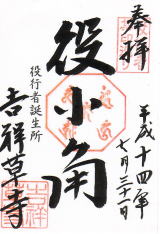 奉拝
平成十四年
七月三十一日
役小角
役行者誕生所
吉祥草寺